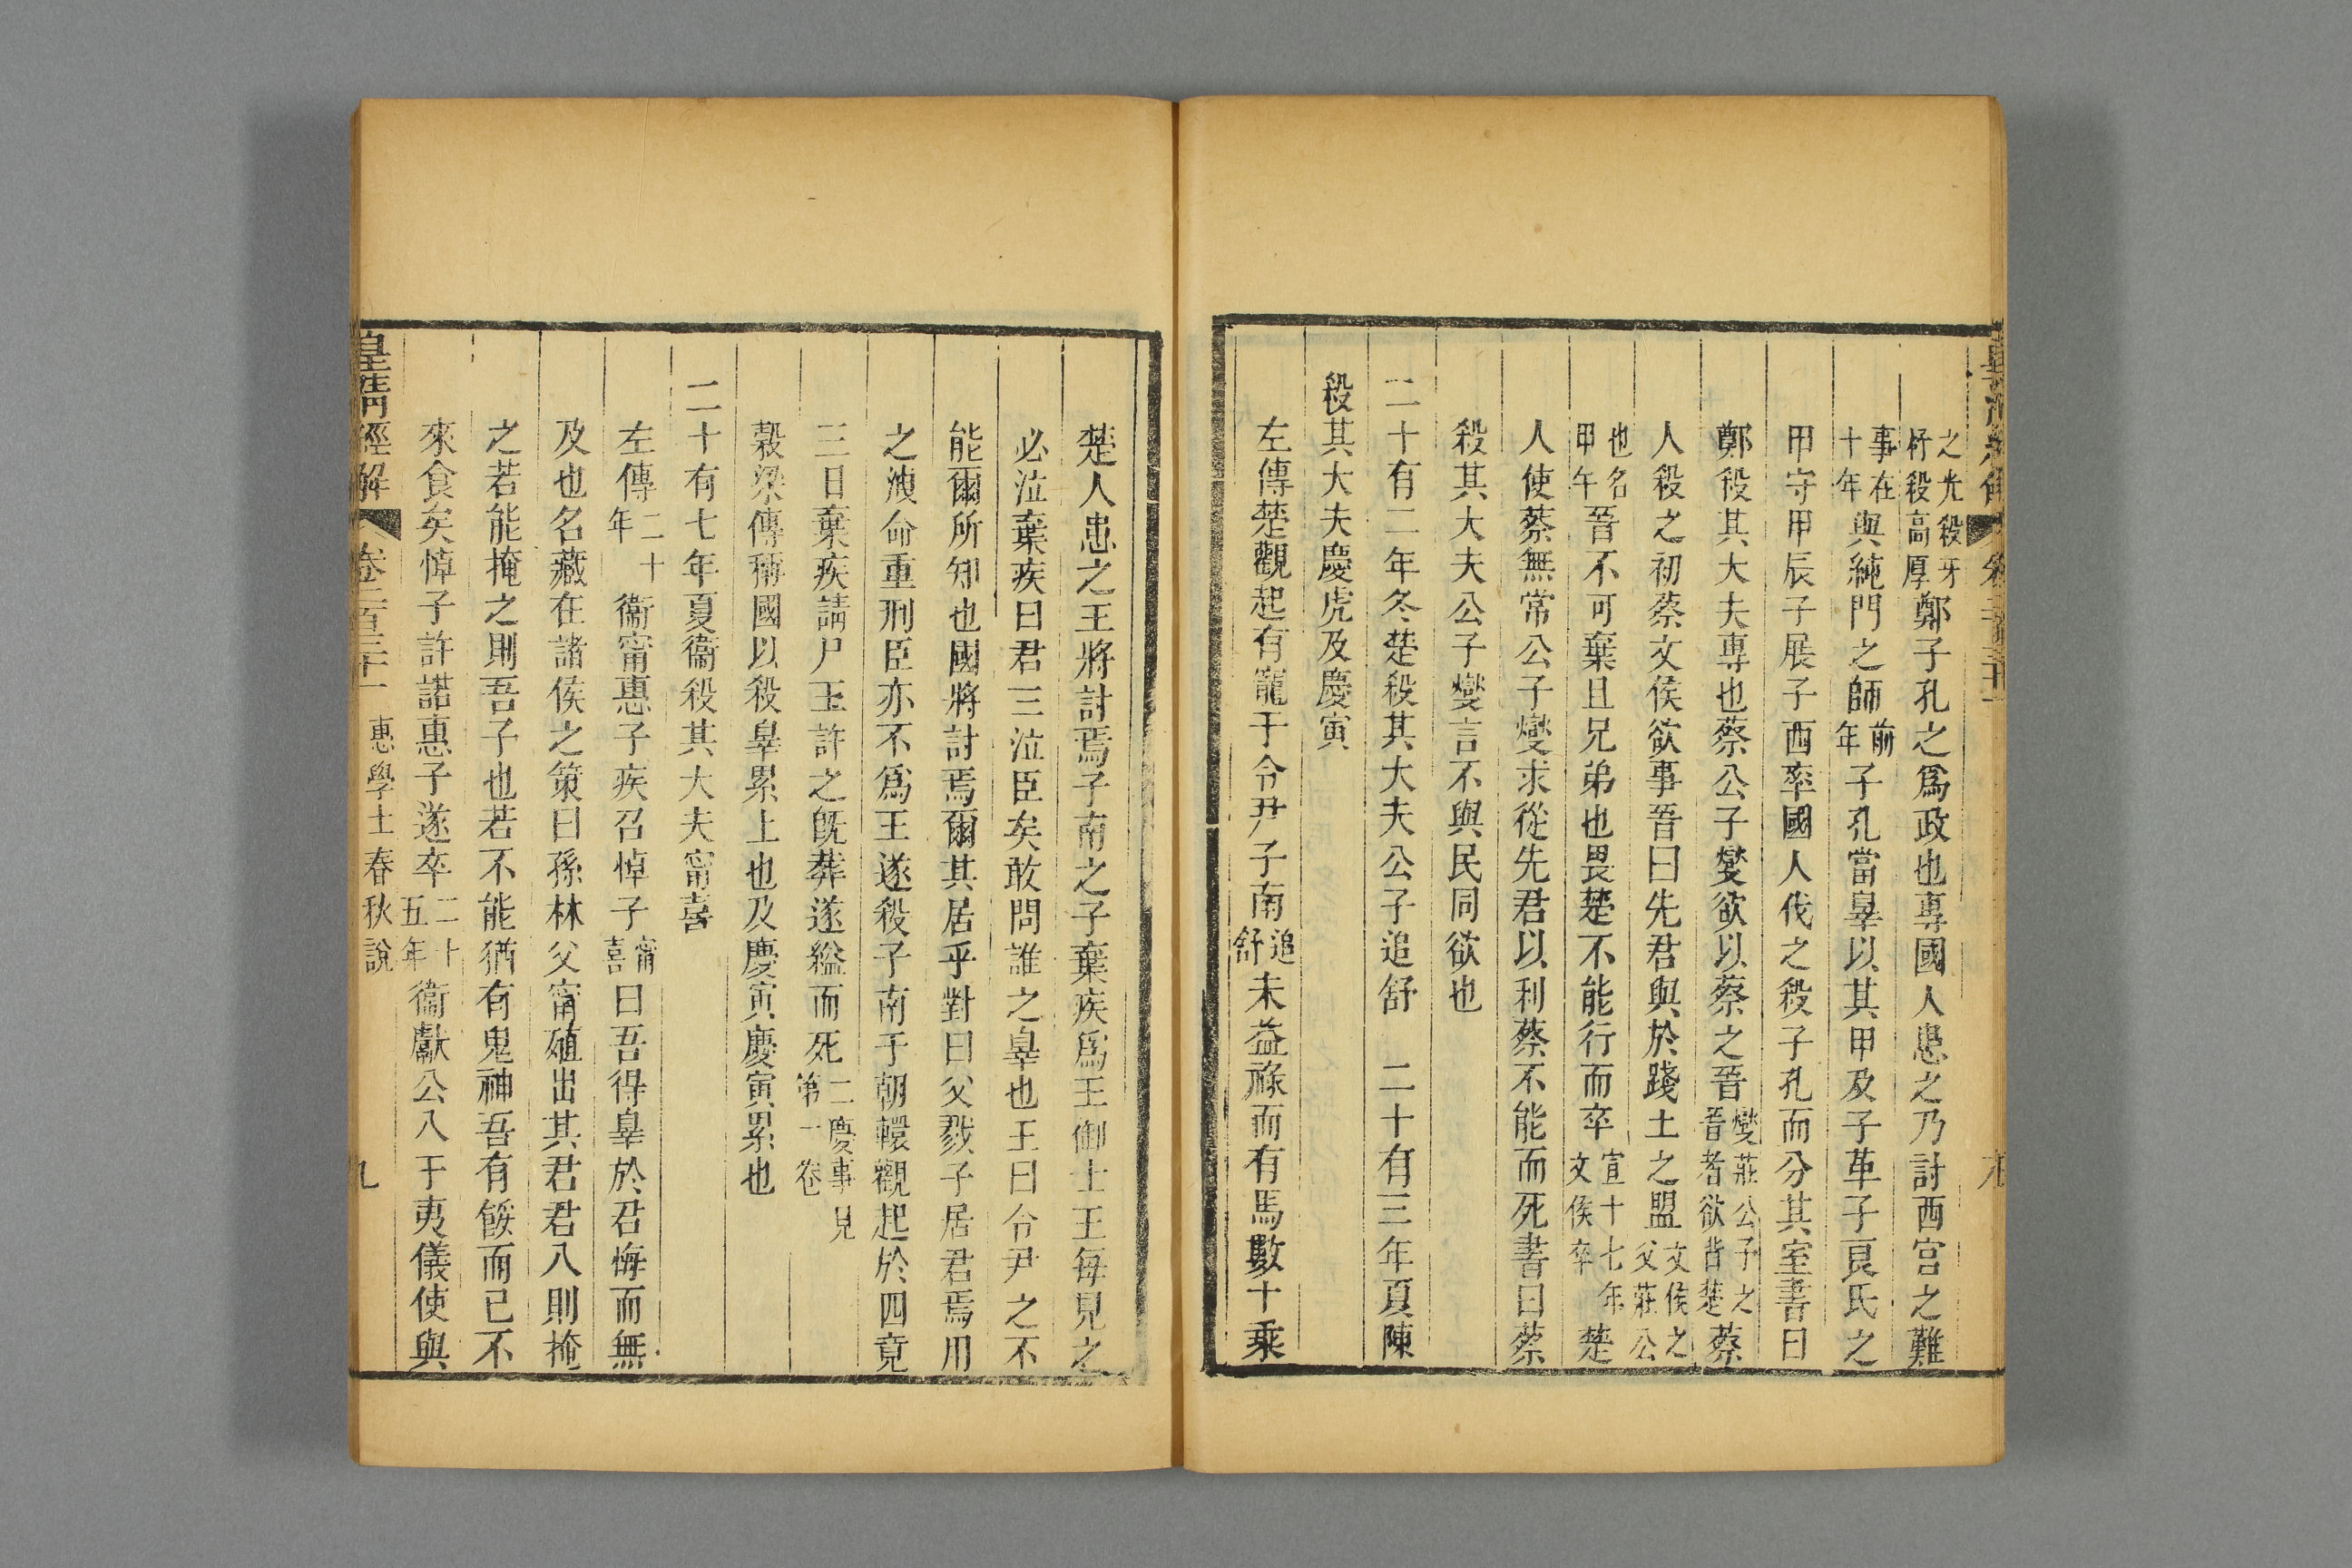 之光殺牙杼殺高厚鄭子孔之爲政也專國人患之乃討西宮之難
事在十年與純門之師前年子孔當辠以其甲及子革子良氏之
甲守甲辰子展子西率國人伐之殺子孔而分其室書曰
鄭殺其大夫專也蔡公子燮欲以蔡之晉燮莊公子之晉者欲背楚蔡
人殺之初蔡文侯欲事晉曰先君與於踐土之盟文侯之父莊公
也名甲午晉不可棄且兄弟也畏楚不能行而卒宣十七年文侯卒楚
人使蔡無常公子燮求從先君以利蔡不能而死書曰蔡
殺其大夫公子燮言不與民同欲也
二十有二年冬楚殺其大夫公子追舒　二十有三年夏陳
殺其大夫慶虎及慶寅
左傳楚觀起有寵于令尹子南追舒未益祿而有馬數十乘
楚人患之王將討焉子南之子棄疾爲王御士王每見之
必泣棄疾曰君三泣臣矣敢問誰之辠也王曰令尹之不
能爾所知也國將討焉爾其居乎對曰父戮子居君焉用
之洩命重刑臣亦不爲王遂殺子南于朝轘觀起於四竟
三日棄疾請尸王許之旣葬遂縊而死二慶事見第一卷
穀梁傳稱國以殺辠累上也及慶寅慶寅累也
二十有七年夏衞殺其大夫甯喜
左傳二十年衞甯惠子疾召悼子甯喜曰吾得辠於君悔而無
及也名藏在諸侯之策曰孫林父甯殖出其君君入則掩
之若能掩之則吾子也若不能猶有鬼神吾有餒而已不
來食矣悼子許諾惠子遂卒二十五年衞獻公入于夷儀使與
皇清經解　卷二百三十一　惠學士春秋說　九